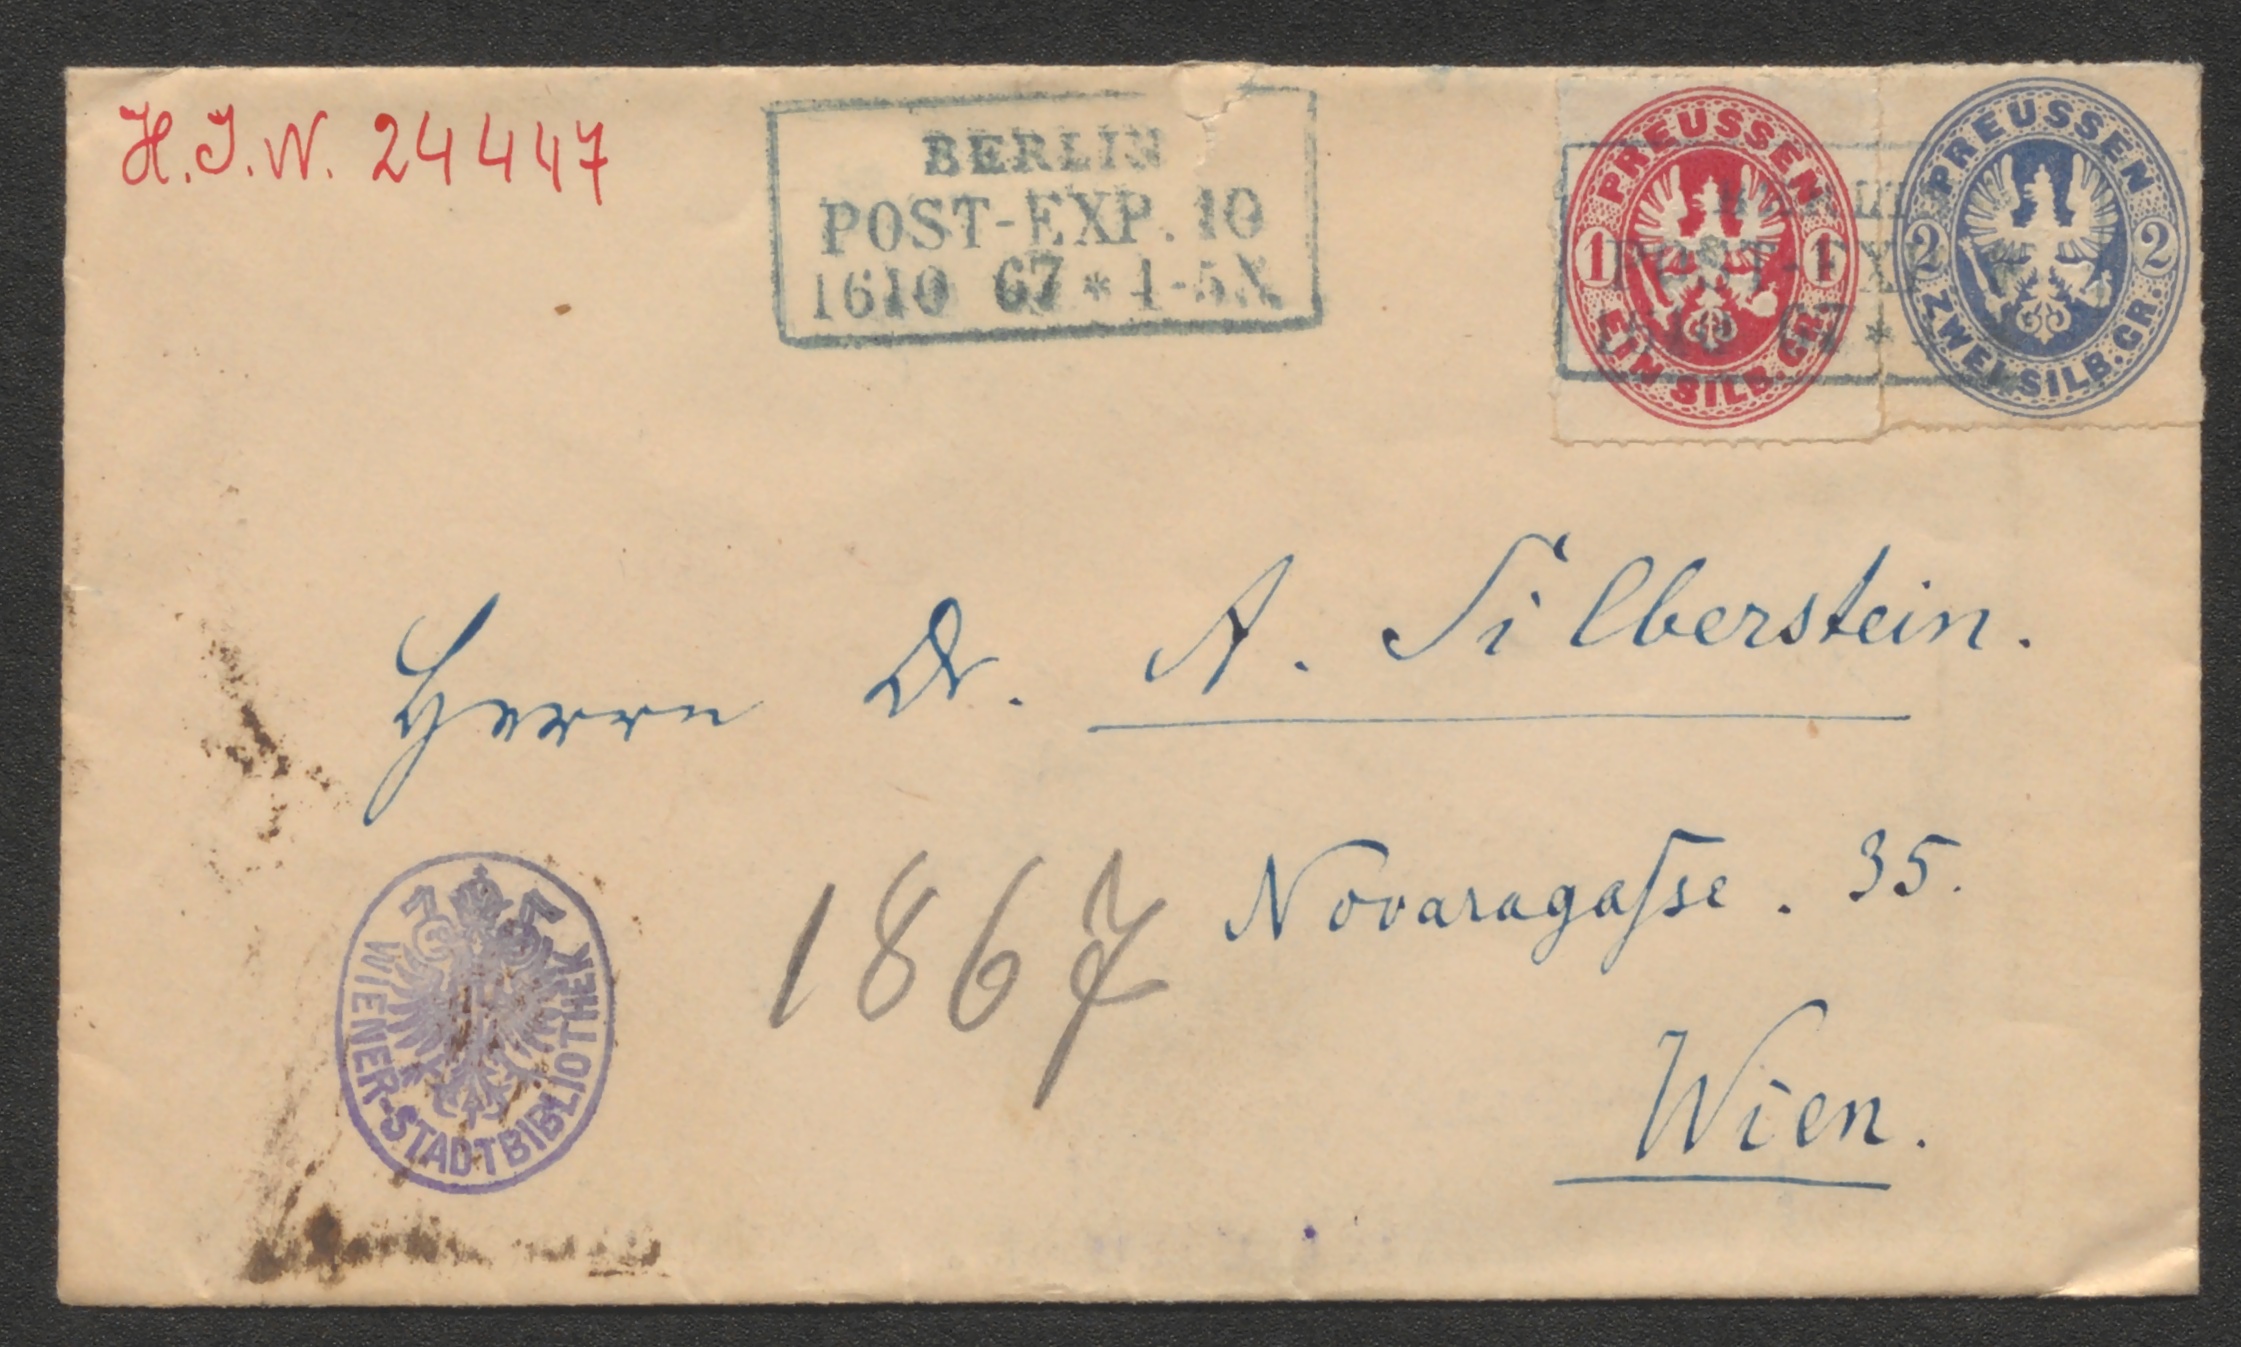 H.I.N. 24447
BERLIN
POST-EXP. 10
1610 67 * 4-5N
PREUSSEN
1 1
EIN SILB. GR.
PREUSSEN
2 2
ZWEI SILB. GR.
POST-EXP
1610 67 *
Herrn Dr. A. Silberstein.
Novaragaſse. 35.
1867
Wien.
WIENER-STADTBIBLIOTHEK